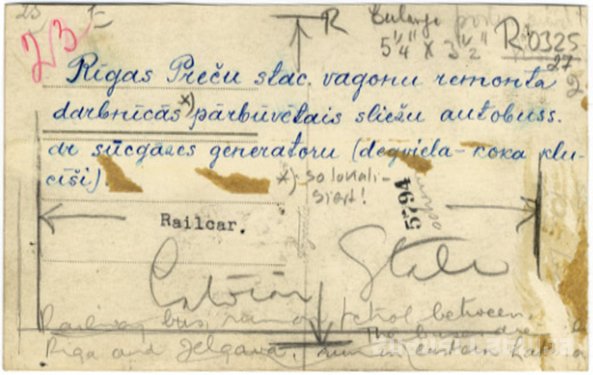 23 1-
23 R 5¼" X 3½" R 0325
27
Rīgas Preču stac. vagonu remonta
darbnīcās x) pārbūvētais sliežu autobuss.
ar sūcgāzes generatoru (degviela - koka klu-
cīši) x) so lokali-
siert!
5294
Railcar.
Latvian State
Railway bus, run on petrol between
Riga and Jelgava. run in